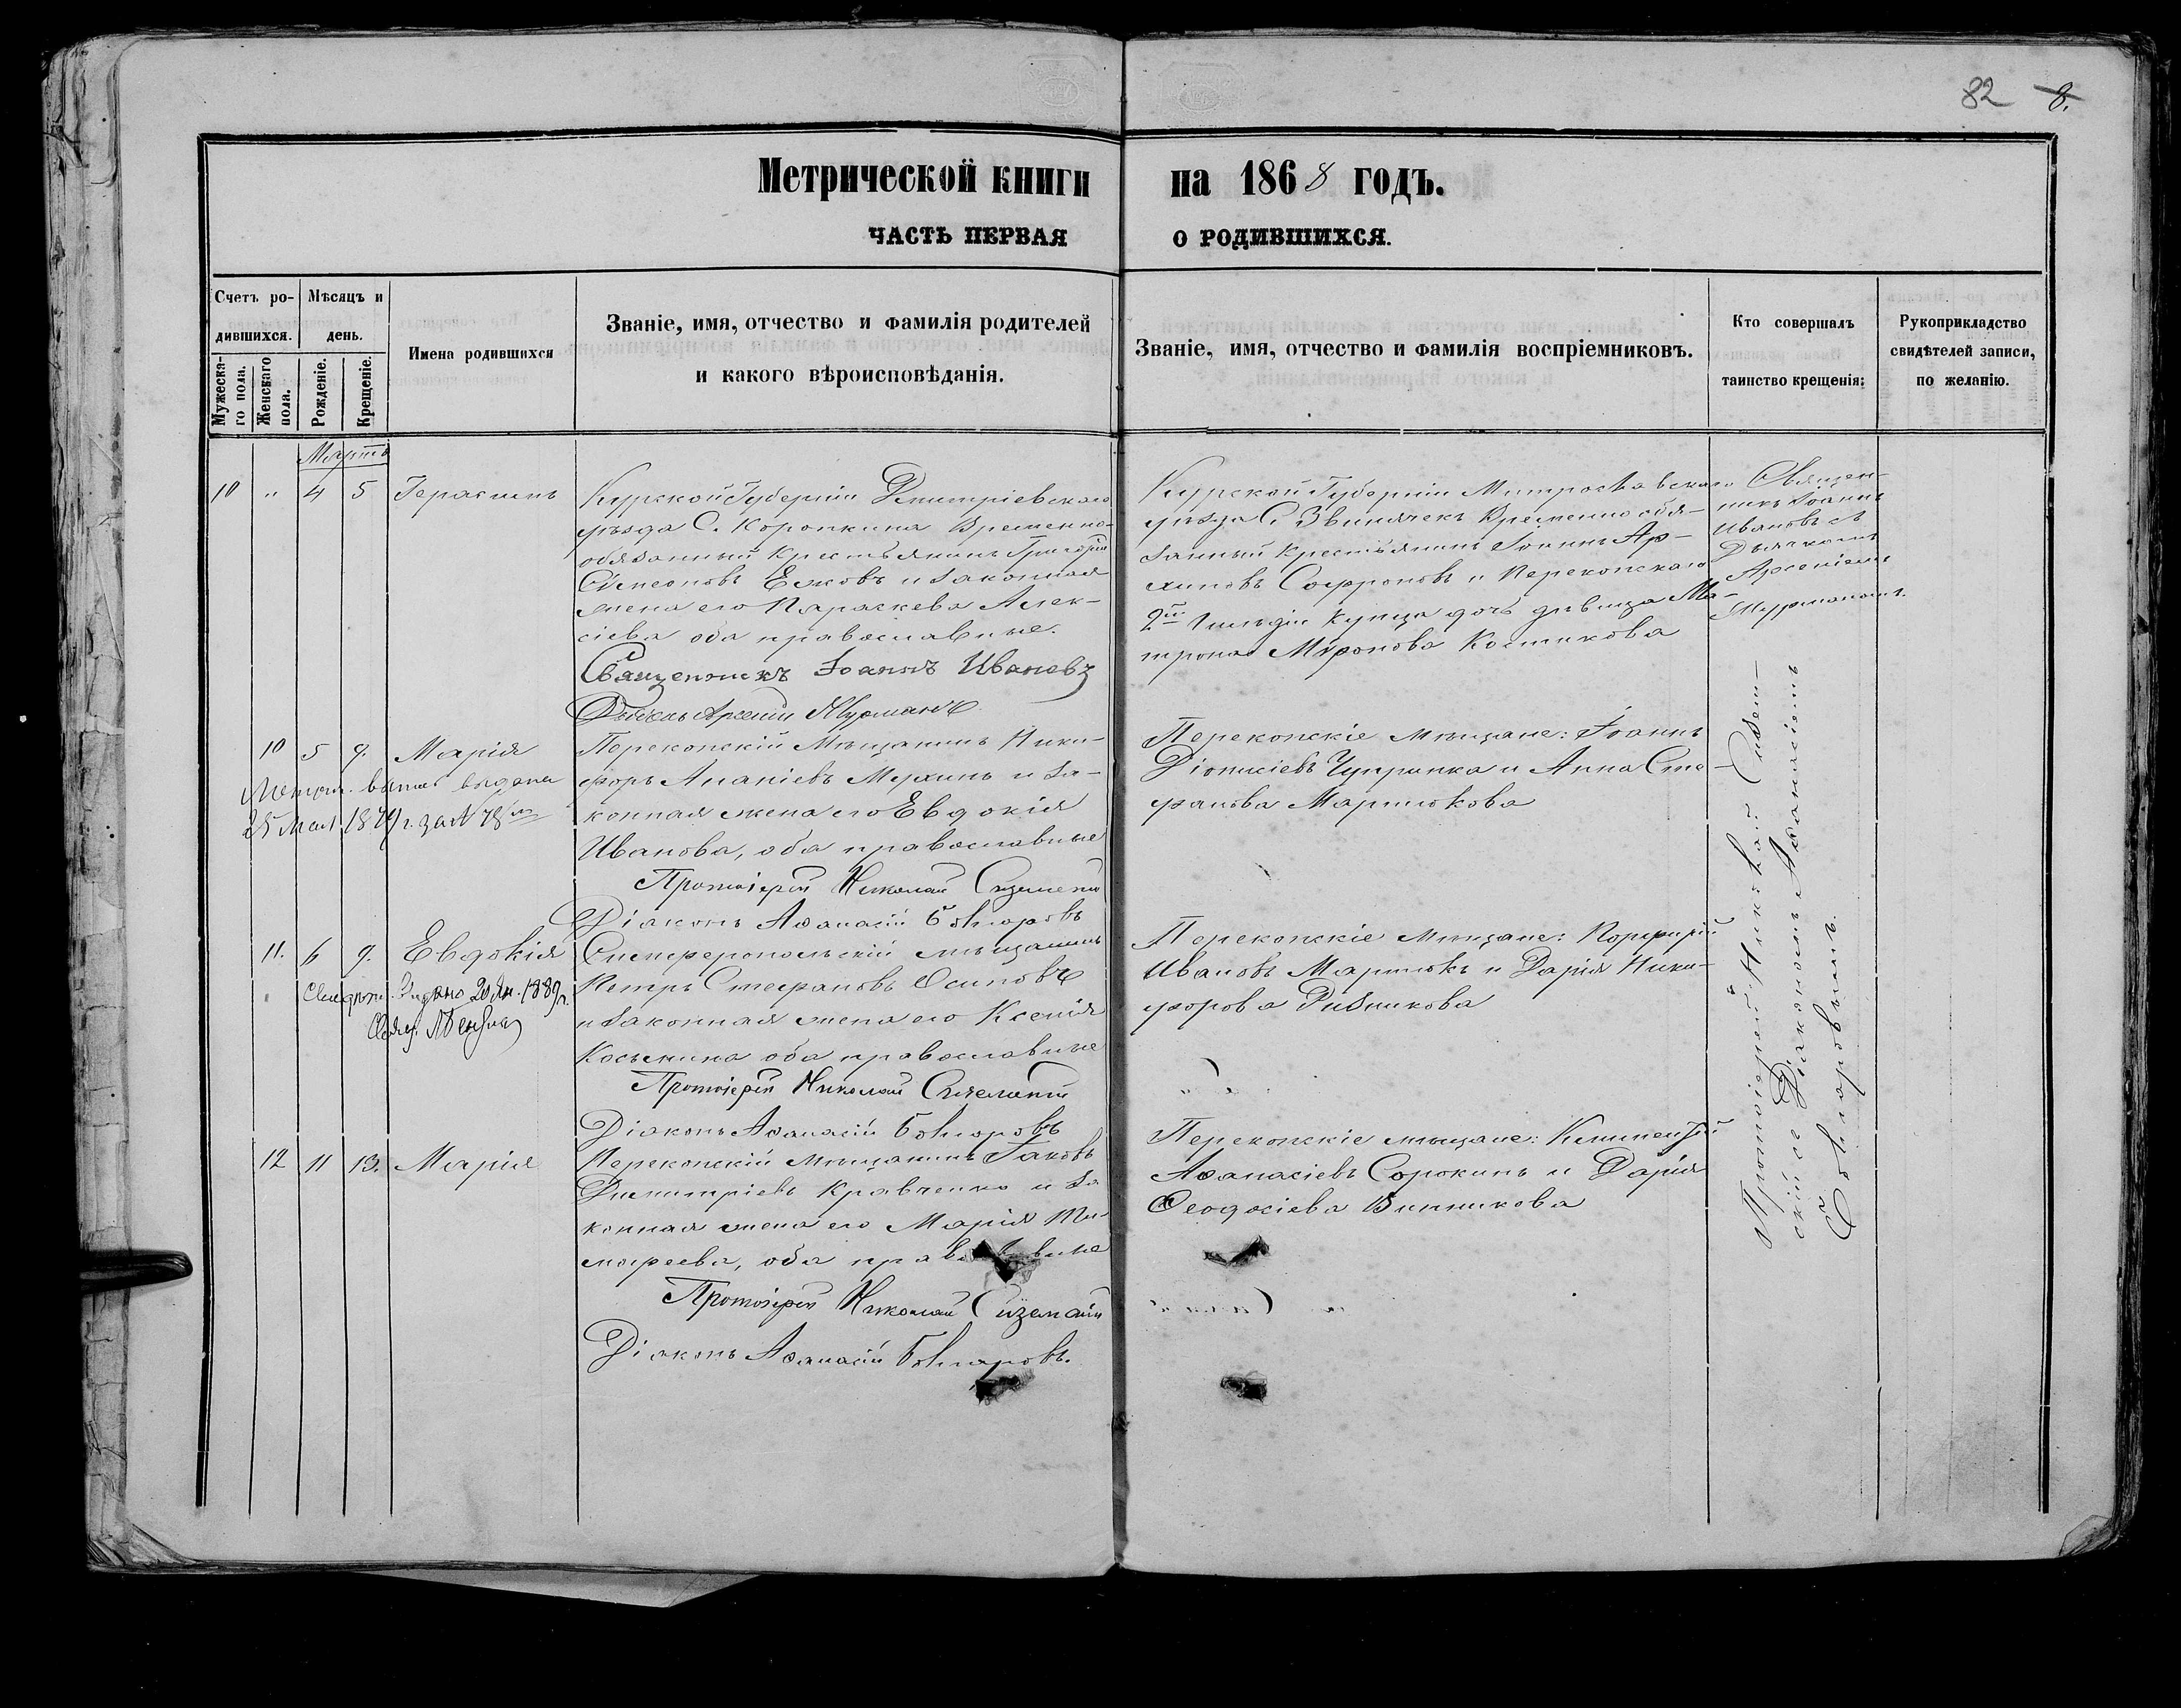 82 8.
Метрической книги на 1868 годъ.
ЧАСТЬ ПЕРВАЯ О РОДИВШИХСЯ.
Счетъ ро-
дившихся.
Мужеска-
го пола.
Женскаго
пола.
Мѣсяцъ и
день.
Рожденіе.
Крещеніе.
Имена родившихся
Званіе, имя, отчество и фамилія родителей
и какого вѣроисповѣданія.
Званіе, имя, отчество и фамилія воспріемниковъ.
Кто совершалъ
таинство крещенія:
Рукоприкладство
свидѣтелей записи,
по желанію.
Мартъ
10 " 4 5 Герасимъ
Курской Губерніи Дмитріевскаго
уѣзда С. Коропкина Временно-
обязанный крестьянинъ Григорій
Симеоновъ Ежовъ и законная
жена его Параскева Алек-
сіева оба православные.
Священникъ Іоаннъ Ивановъ
Дьячекъ Арсеній Мурманъ
Курской Губерніи
уѣзда С. Звинячекъ Временно обя-
занный крестьянинъ Іоаннъ Ар-
хиповъ Софроновъ и Перекопскаго
2й Гильдіи Купца дочь дѣвица Ма-
трона Миронова Костикова
Священ-
никъ Іоаннъ
Ивановъ съ
Дьячкомъ
Арсеніемъ
Мурманомъ.
10 5 9. Марія
Метрич. выпись выдана
25 Мая 187 г. за № 78
Перекопскій Мѣщанинъ Ники-
форъ Ананіевъ Мухинъ и за-
конная жена его Евдокія
Иванова, оба православные
Протоіерей Николай
Діаконъ Аѳанасій Бохнаровъ
Перекопскіе мѣщане: Іоаннъ
Діонисіевъ Чупринка и Анна Сте-
фанова Мартюкова
11. 6 9. Евдокія
Свидѣт. Выдано 20 Ян. 1889 г.
Симферопольскій мѣщанинъ
Петръ Стефановъ Осиповъ
и законная жена его Ксенія
Косьмина оба православные
Протоіерей Николай
Діаконъ Аѳанасій Бохнаровъ
Перекопскіе мѣщане: Порфирій
Ивановъ Мартюкъ и Дарія Ники-
форова Рибникова
12 11 13. Марія
Перекопскій мѣщанинъ Іаковъ
Димитріевъ Кравченко и за
конная жена его Марія Ти-
моѳеева, оба православные
Протоіерей Николай
Діаконъ Аѳанасій Бохнаровъ.
Перекопскіе мѣщане: Климентій
Аѳанасіевъ Сорокинъ и Дарія
Ѳеодосіева Винникова
Протоіерей Николай
скій съ Діакономъ Аѳанасіемъ